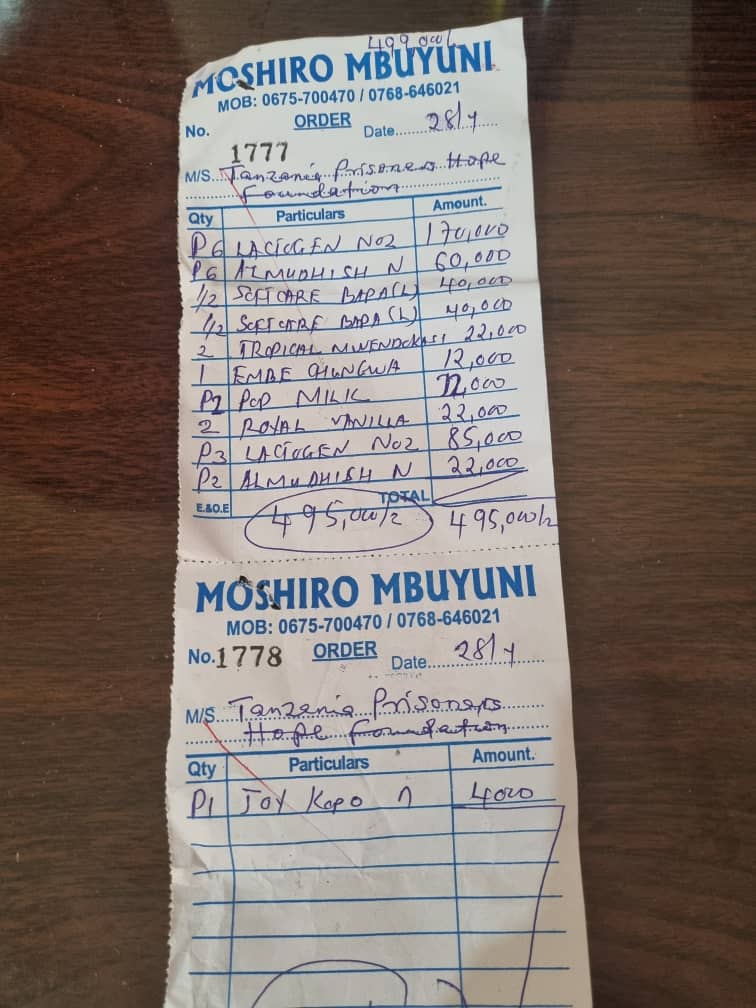 499,000/
MOSHIRO MBUYUNI
MOB: 0675-700470 / 0768-646021
ORDER
No. 1777 Date 28/7
M/S. Tanzania Prisoners Hope
Foundation
Qty Particulars Amount.
P6 LACTOGEN NO2 170,000
P6 ALMUDHISH N 60,000
1/2 SOFTCARE BAPA (L) 40,000
1/2 SOFTCARE BAPA (L) 40,000
2 TROPICAL MWENDOKASI 22,000
1 EMBE CHUNGWA 12,000
P2 POP MILIC 22,000
2 ROYAL VANILLA 22,000
P3 LACTOGEN NO2 85,000
P2 ALMUDHISH N 22,000
E.&O.E TOTAL
495,000/2 495,000/2
MOSHIRO MBUYUNI
MOB: 0675-700470 / 0768-646021
No. 1778 ORDER Date 28/7
M/S. Tanzania Prisoners
Hope Foundation
Qty Particulars Amount.
P1 JOY Kopo 4000